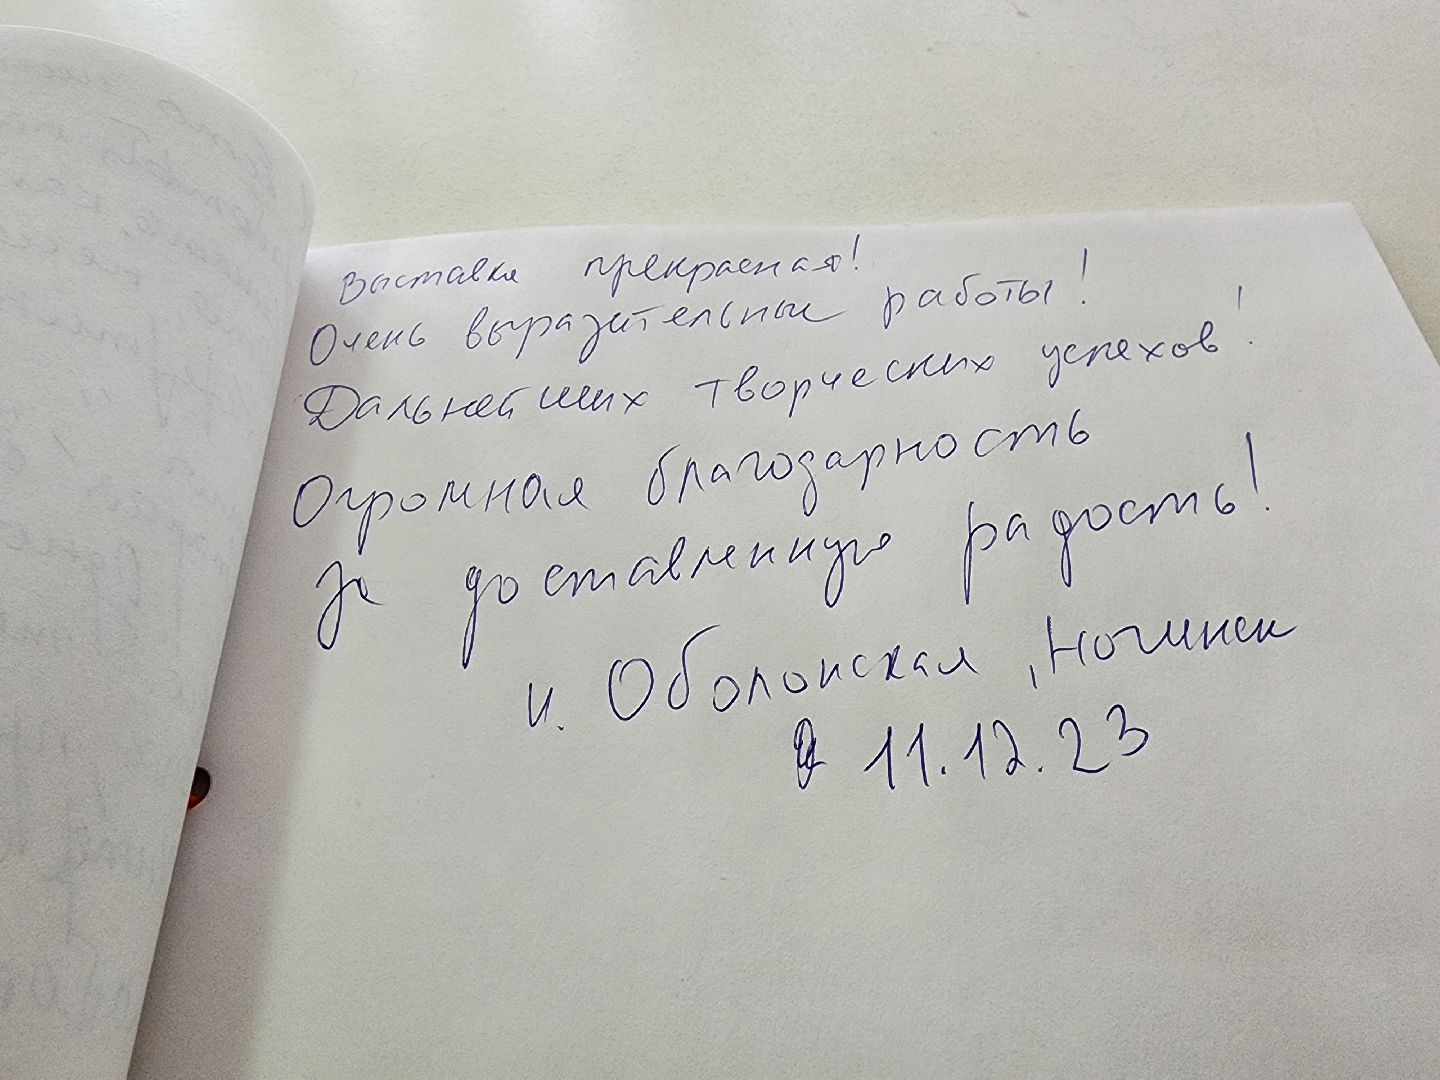 Выставка прекрасная!
Очень выразительные работы!
Дальнейших творческих успехов!
Огромная благодарность
за доставленную радость!
и. Оболонская, Ногинск
11.12.23